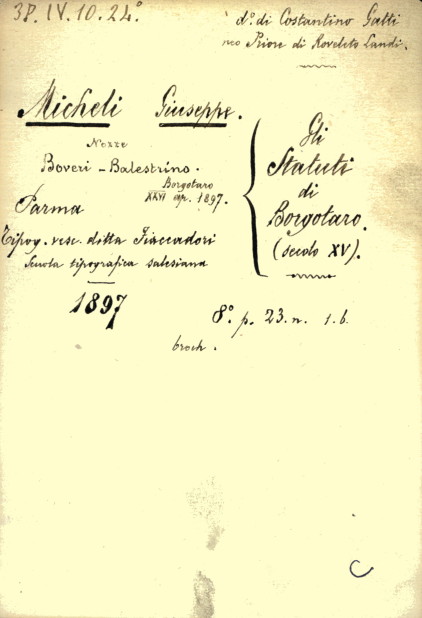 38. IV. 10. 24º
dº. di Costantino Gatti
neo Priore di Roveleto Landi.
Micheli Giuseppe.
Nozze
Boveri - Balestrino.
Borgotaro
XXVI ap. 1897.
Parma
Tipog. vesc. ditta Fiaccadori
Scuola tipografica salesiana
1897
Gli
Statuti
di
Borgotaro.
(secolo XV).
8º. p. 23. n. 1. b.
broch.
C